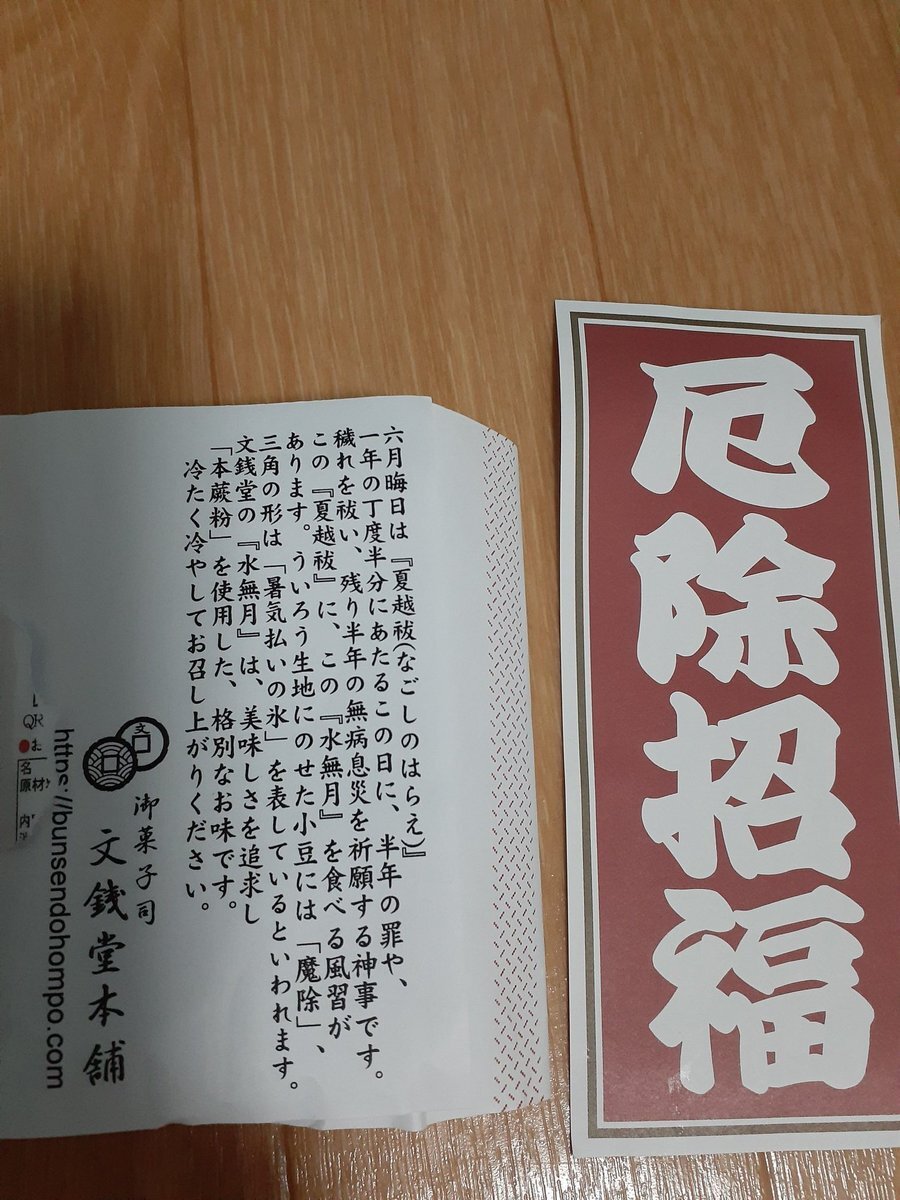 厄除招福
六月晦日は『夏越祓(なごしのはらえ)』
一年の丁度半分にあたるこの日に、半年の罪や、
穢れを祓い、残り半年の無病息災を祈願する神事です。
この『夏越祓』に、この『水無月』を食べる風習が
あります。ういろう生地にのせた小豆には「魔除」、
三角の形は「暑気払いの氷」を表しているといわれます。
文銭堂の『水無月』は、美味しさを追求し
「本蕨粉」を使用した、格別なお味です。
冷たく冷やしてお召し上がりください。
文
御菓子司
文銭堂本舗
https://bunsendohompo.com
QR
名
原材
内